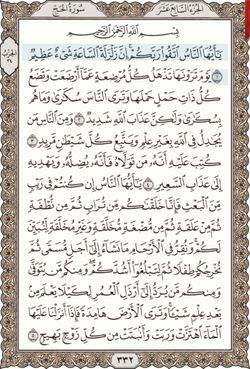 الجُزْءُ السَّابِعَ عَشَرَ
سُورَةُ الحَجِّ
بِسْمِ ٱللَّهِ ٱلرَّحْمَٰنِ ٱلرَّحِيمِ
يَٰٓأَيُّهَا ٱلنَّاسُ ٱتَّقُوا۟ رَبَّكُمْ إِنَّ زَلْزَلَةَ ٱلسَّاعَةِ شَىْءٌ عَظِيمٌ
١ يَوْمَ تَرَوْنَهَا تَذْهَلُ كُلُّ مُرْضِعَةٍ عَمَّآ أَرْضَعَتْ وَتَضَعُ
كُلُّ ذَاتِ حَمْلٍ حَمْلَهَا وَتَرَى ٱلنَّاسَ سُكَٰرَىٰ وَمَا هُم
بِسُكَٰرَىٰ وَلَٰكِنَّ عَذَابَ ٱللَّهِ شَدِيدٌ ٢ وَمِنَ ٱلنَّاسِ مَن
يُجَٰدِلُ فِى ٱللَّهِ بِغَيْرِ عِلْمٍ وَيَتَّبِعُ كُلَّ شَيْطَٰنٍ مَّرِيدٍ ٣
كُتِبَ عَلَيْهِ أَنَّهُۥ مَن تَوَلَّاهُ فَأَنَّهُۥ يُضِلُّهُۥ وَيَهْدِيهِ
إِلَىٰ عَذَابِ ٱلسَّعِيرِ ٤ يَٰٓأَيُّهَا ٱلنَّاسُ إِن كُنتُمْ فِى رَيْبٍ
مِّنَ ٱلْبَعْثِ فَإِنَّا خَلَقْنَٰكُم مِّن تُرَابٍ ثُمَّ مِن نُّطْفَةٍ
ثُمَّ مِنْ عَلَقَةٍ ثُمَّ مِن مُّضْغَةٍ مُّخَلَّقَةٍ وَغَيْرِ مُخَلَّقَةٍ لِّنُبَيِّنَ
لَكُمْ وَنُقِرُّ فِى ٱلْأَرْحَامِ مَا نَشَآءُ إِلَىٰٓ أَجَلٍ مُّسَمًّى ثُمَّ
نُخْرِجُكُمْ طِفْلًا ثُمَّ لِتَبْلُغُوٓا۟ أَشُدَّكُمْ وَمِنكُم مَّن يُتَوَفَّىٰ
وَمِنكُم مَّن يُرَدُّ إِلَىٰٓ أَرْذَلِ ٱلْعُمُرِ لِكَيْلَا يَعْلَمَ مِنۢ
بَعْدِ عِلْمٍ شَيْـًٔا وَتَرَى ٱلْأَرْضَ هَامِدَةً فَإِذَآ أَنزَلْنَا عَلَيْهَا
ٱلْمَآءَ ٱهْتَزَّتْ وَرَبَتْ وَأَنۢبَتَتْ مِن كُلِّ زَوْجٍۭ بَهِيجٍ ٥
٣٣٢